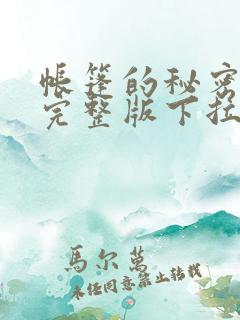 帳篷的秘密
完整版下拉
馬尔萬
未经同意禁止转载